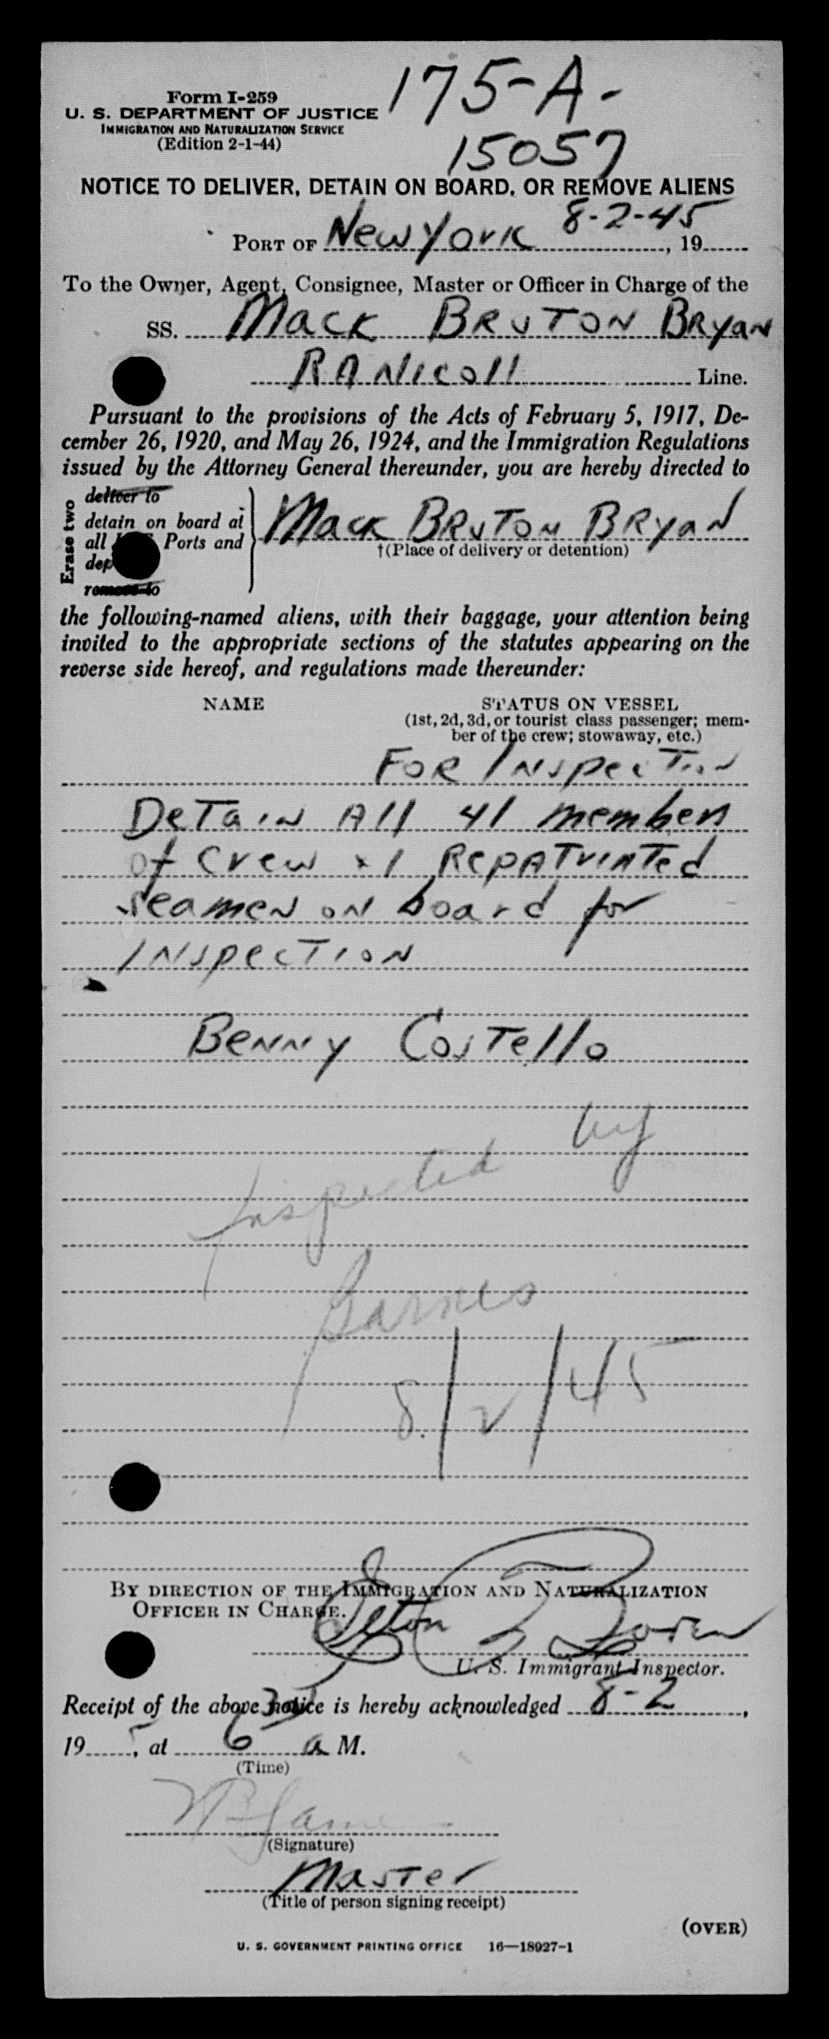 175-A-
15057
Form I-259
U. S. DEPARTMENT OF JUSTICE
IMMIGRATION AND NATURALIZATION SERVICE
(Edition 2-1-44)
NOTICE TO DELIVER, DETAIN ON BOARD, OR REMOVE ALIENS
PORT OF New York 8-2-45, 19
To the Owner, Agent, Consignee, Master or Officer in Charge of the
SS. Mack BRUTON BRyaN
RA Nicoll Line.
Pursuant to the provisions of the Acts of February 5, 1917, De-
cember 26, 1920, and May 26, 1924, and the Immigration Regulations
issued by the Attorney General thereunder, you are hereby directed to
Erase two
deliver to
detain on board at
all Ports and
remove to
Mack BRUTON BRyaN
†(Place of delivery or detention)
the following-named aliens, with their baggage, your attention being
invited to the appropriate sections of the statutes appearing on the
reverse side hereof, and regulations made thereunder:
NAME STATUS ON VESSEL
(1st, 2d, 3d, or tourist class passenger; mem-
ber of the crew; stowaway, etc.)
FOR INspecTioN
DeTaiN All 41 members
of crew + 1 RepATriATed
seameN oN board for
INspecTioN
BeNNy CosTello
Inspected by
Barnes
8/2/45
BY DIRECTION OF THE IMMIGRATION AND NATURALIZATION
OFFICER IN CHARGE.
U. S. Immigrant Inspector.
Receipt of the above notice is hereby acknowledged 8-2,
19 5, at 6 a M.
(Time)
(Signature)
Master
(Title of person signing receipt)
(OVER)
U. S. GOVERNMENT PRINTING OFFICE 16—18927-1